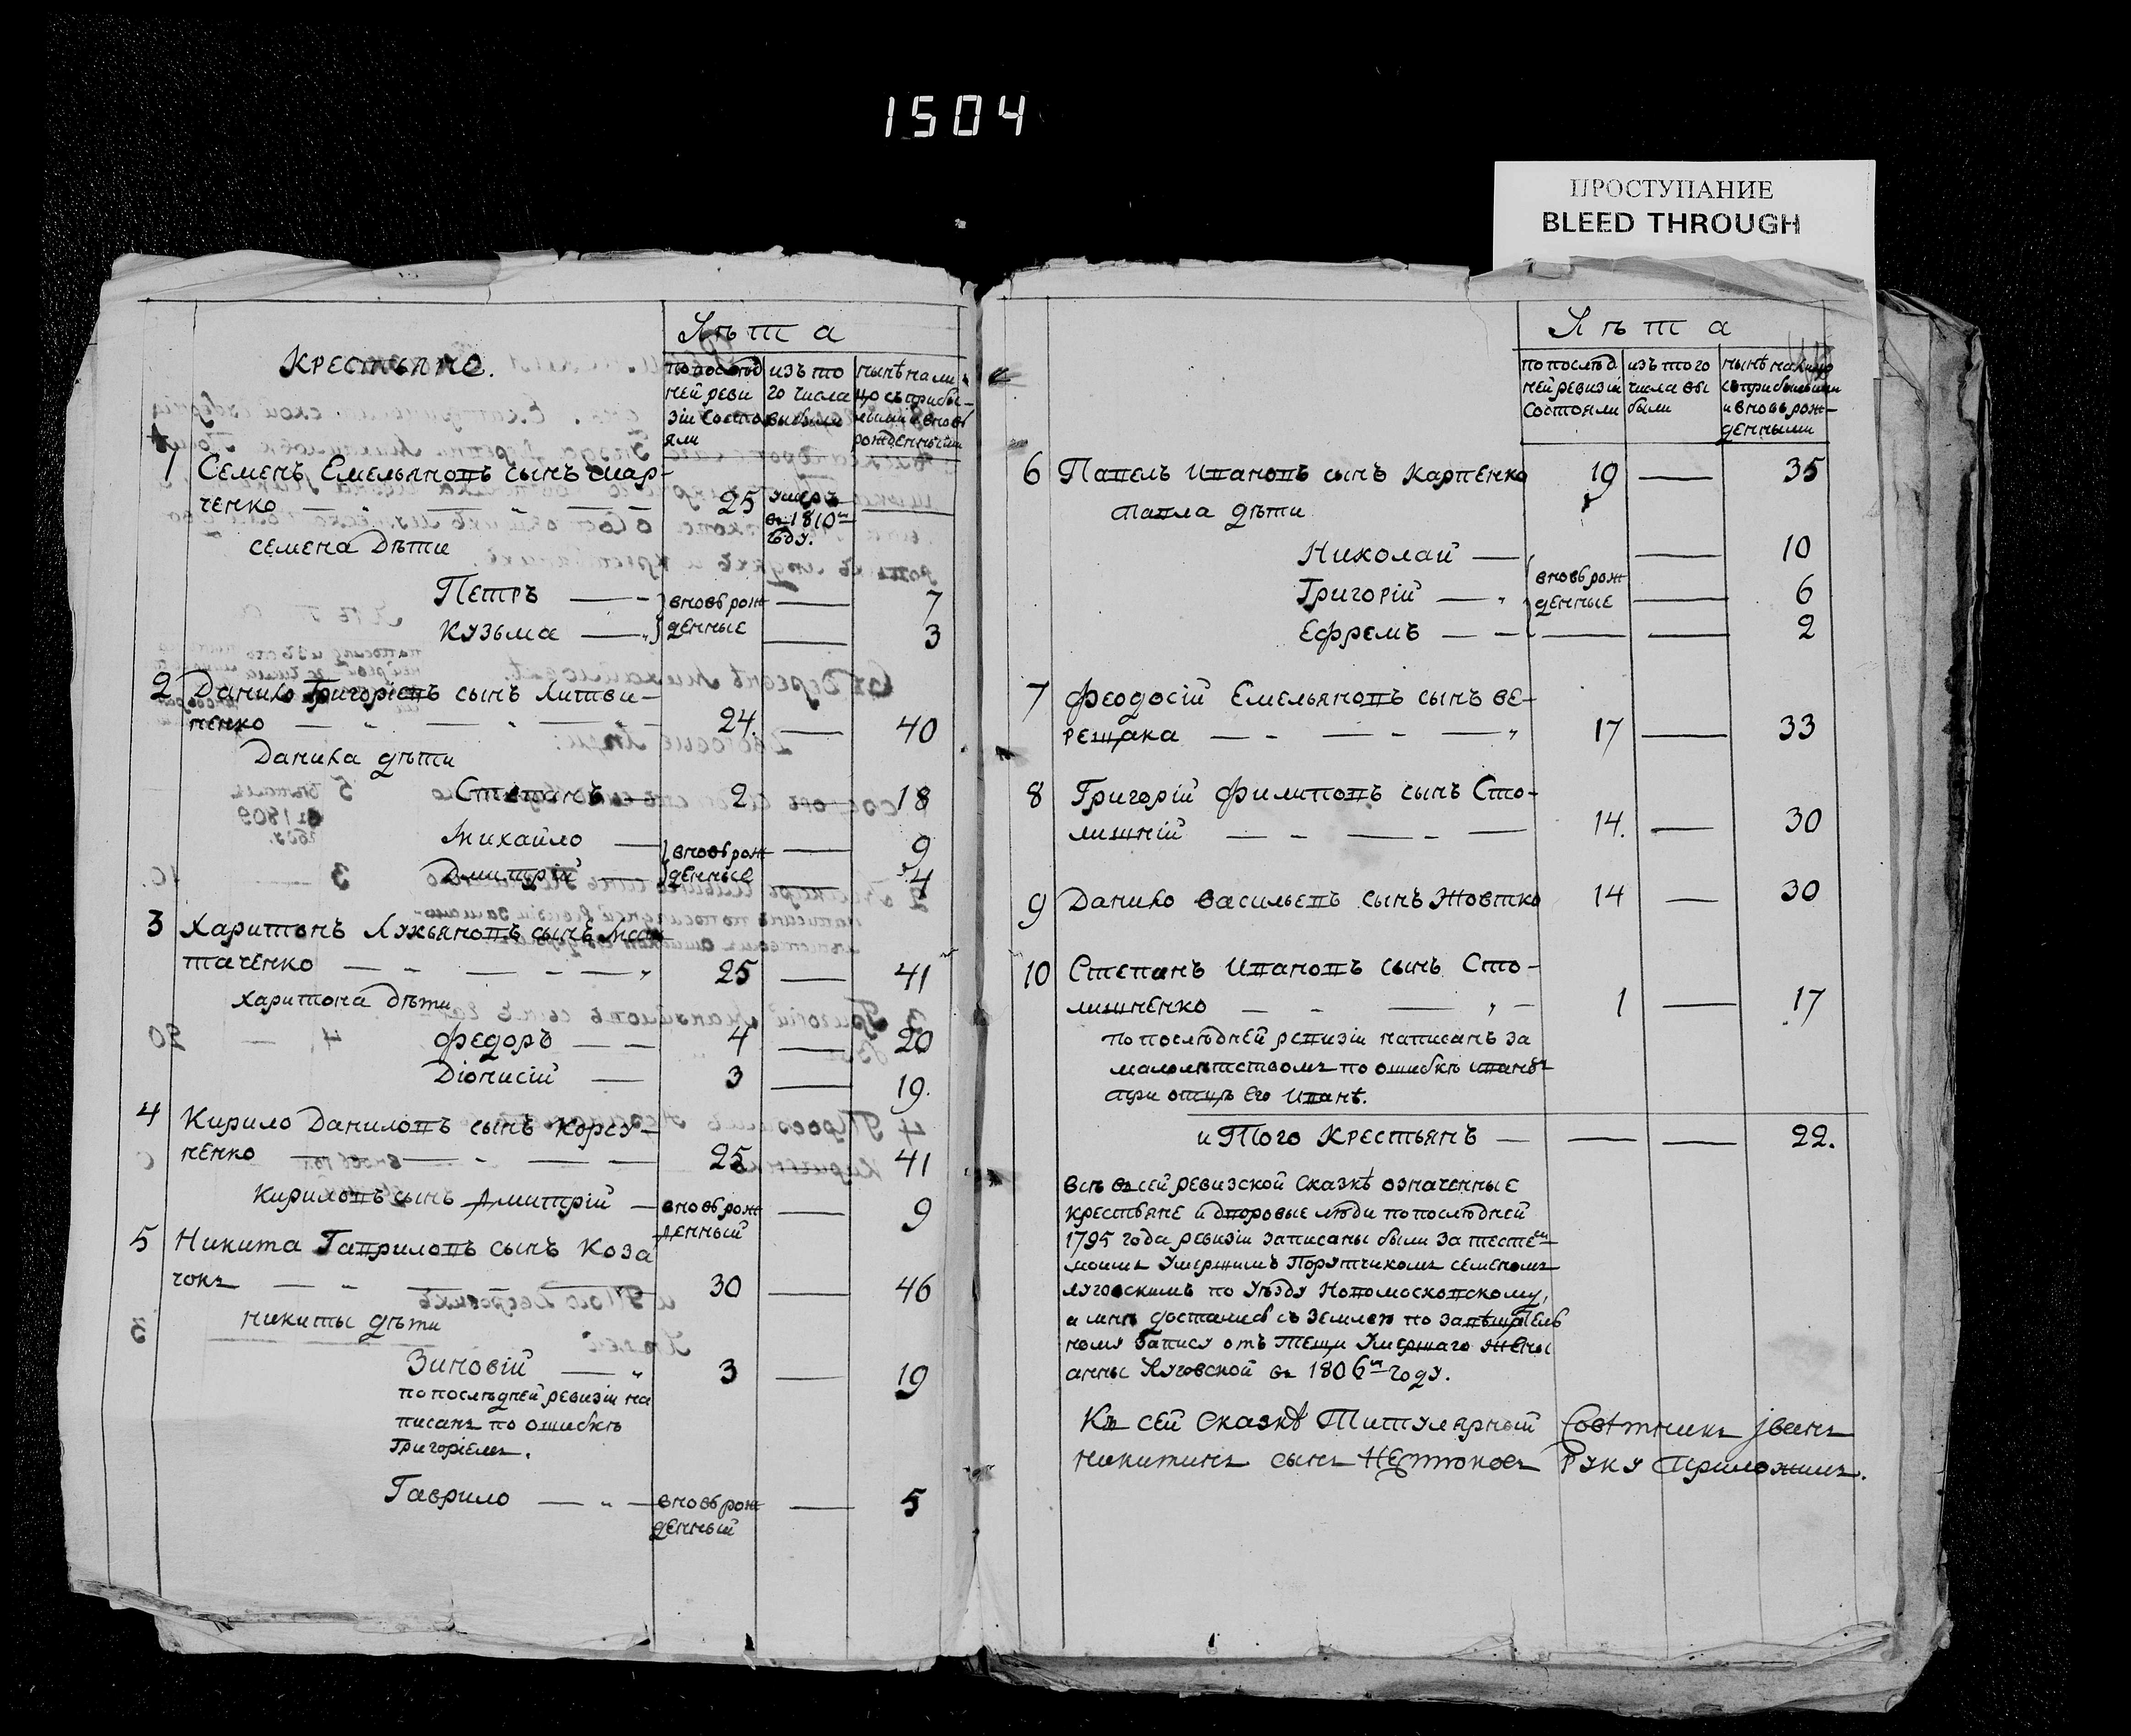 1504
ПРОСТУПАНИЕ
BLEED THROUGH
Лѣта
Крестьяне.
по послѣд
ней реви
зіи состо
яли
изъ то
го числа
выбыло
нынѣ нали
цо съ прибы-
лыми и вновь
рожденными
1 Семенъ Емельяновъ сынъ Мар-
ченко 25 умеръ
въ 1810м
году.
Семена Дѣти
Петръ — вновь рож — 7
Кузьма — денные — 3
2 Данило Григоріевъ сынъ Литви-
ненко 24. — 40
Данила дѣти
Степанъ — 2 — 18
Михайло — вновь рож — 9
Дмитрій — денные — 4
3 Харитонъ Лукьяновъ сынъ
таченко 25 — 41
Харитона Дѣти
Федоръ — 4 — 20
Діонисій — 3 — 19.
4 Кирило Даниловъ сынъ Корсу-
ненко 25 — 41
Кириловъ сынъ Дмитрій — вновь рож — 9
денный
5 Никита Гавриловъ сынъ Коза
чокъ 30 — 46
Никиты дѣти
Зиновій — 3 — 19
по послѣдней ревизіи на
писанъ по ошибкѣ
Григоріемъ.
Гаврило — вновь рож — 5
денный
Лѣта
по послѣд
ней ревизіи
состояли
изъ того
числа вы
были
нынѣ налицо
съ прибылыми
и вновь рож-
денными
6 Павелъ Ивановъ сынъ Карпенко 19 — 35
Павла дѣти
Николай — — 10
вновь рож
Григорій — денные — 6
Ефремъ — — 2
7 Феодосій Емельяновъ сынъ Ве-
рещака 17 — 33
8 Григорій Филиповъ сынъ Сто-
лишній 14. — 30
9 Данило Васильевъ сынъ Жовтко 14 — 30
10 Степанъ Ивановъ сынъ Сто-
лишненко 1 — 17
по послѣдней ревизіи написанъ за
малолѣтствомъ по ошибкѣ
при отцѣ Его Иванѣ.
и Того Крестьянъ — — — 22.
Всѣ въ сей ревизской Сказкѣ означенные
крестьяне и дворовые люди по послѣдней
1795 года ревизіи записаны были за тестемъ
моимъ Умершимъ Порутчикомъ Семеномъ
Луговскимъ по Уѣзду Новомосковскому,
а мнѣ достались съ Землею по Завѣщатель
ному Запису отъ Тещи Умершаго жены
анны Луговской въ 1806м году.
Къ сей Сказкѣ Титулярный Совѣтникъ Іванъ
Никитинъ сынъ Руку Приложилъ.